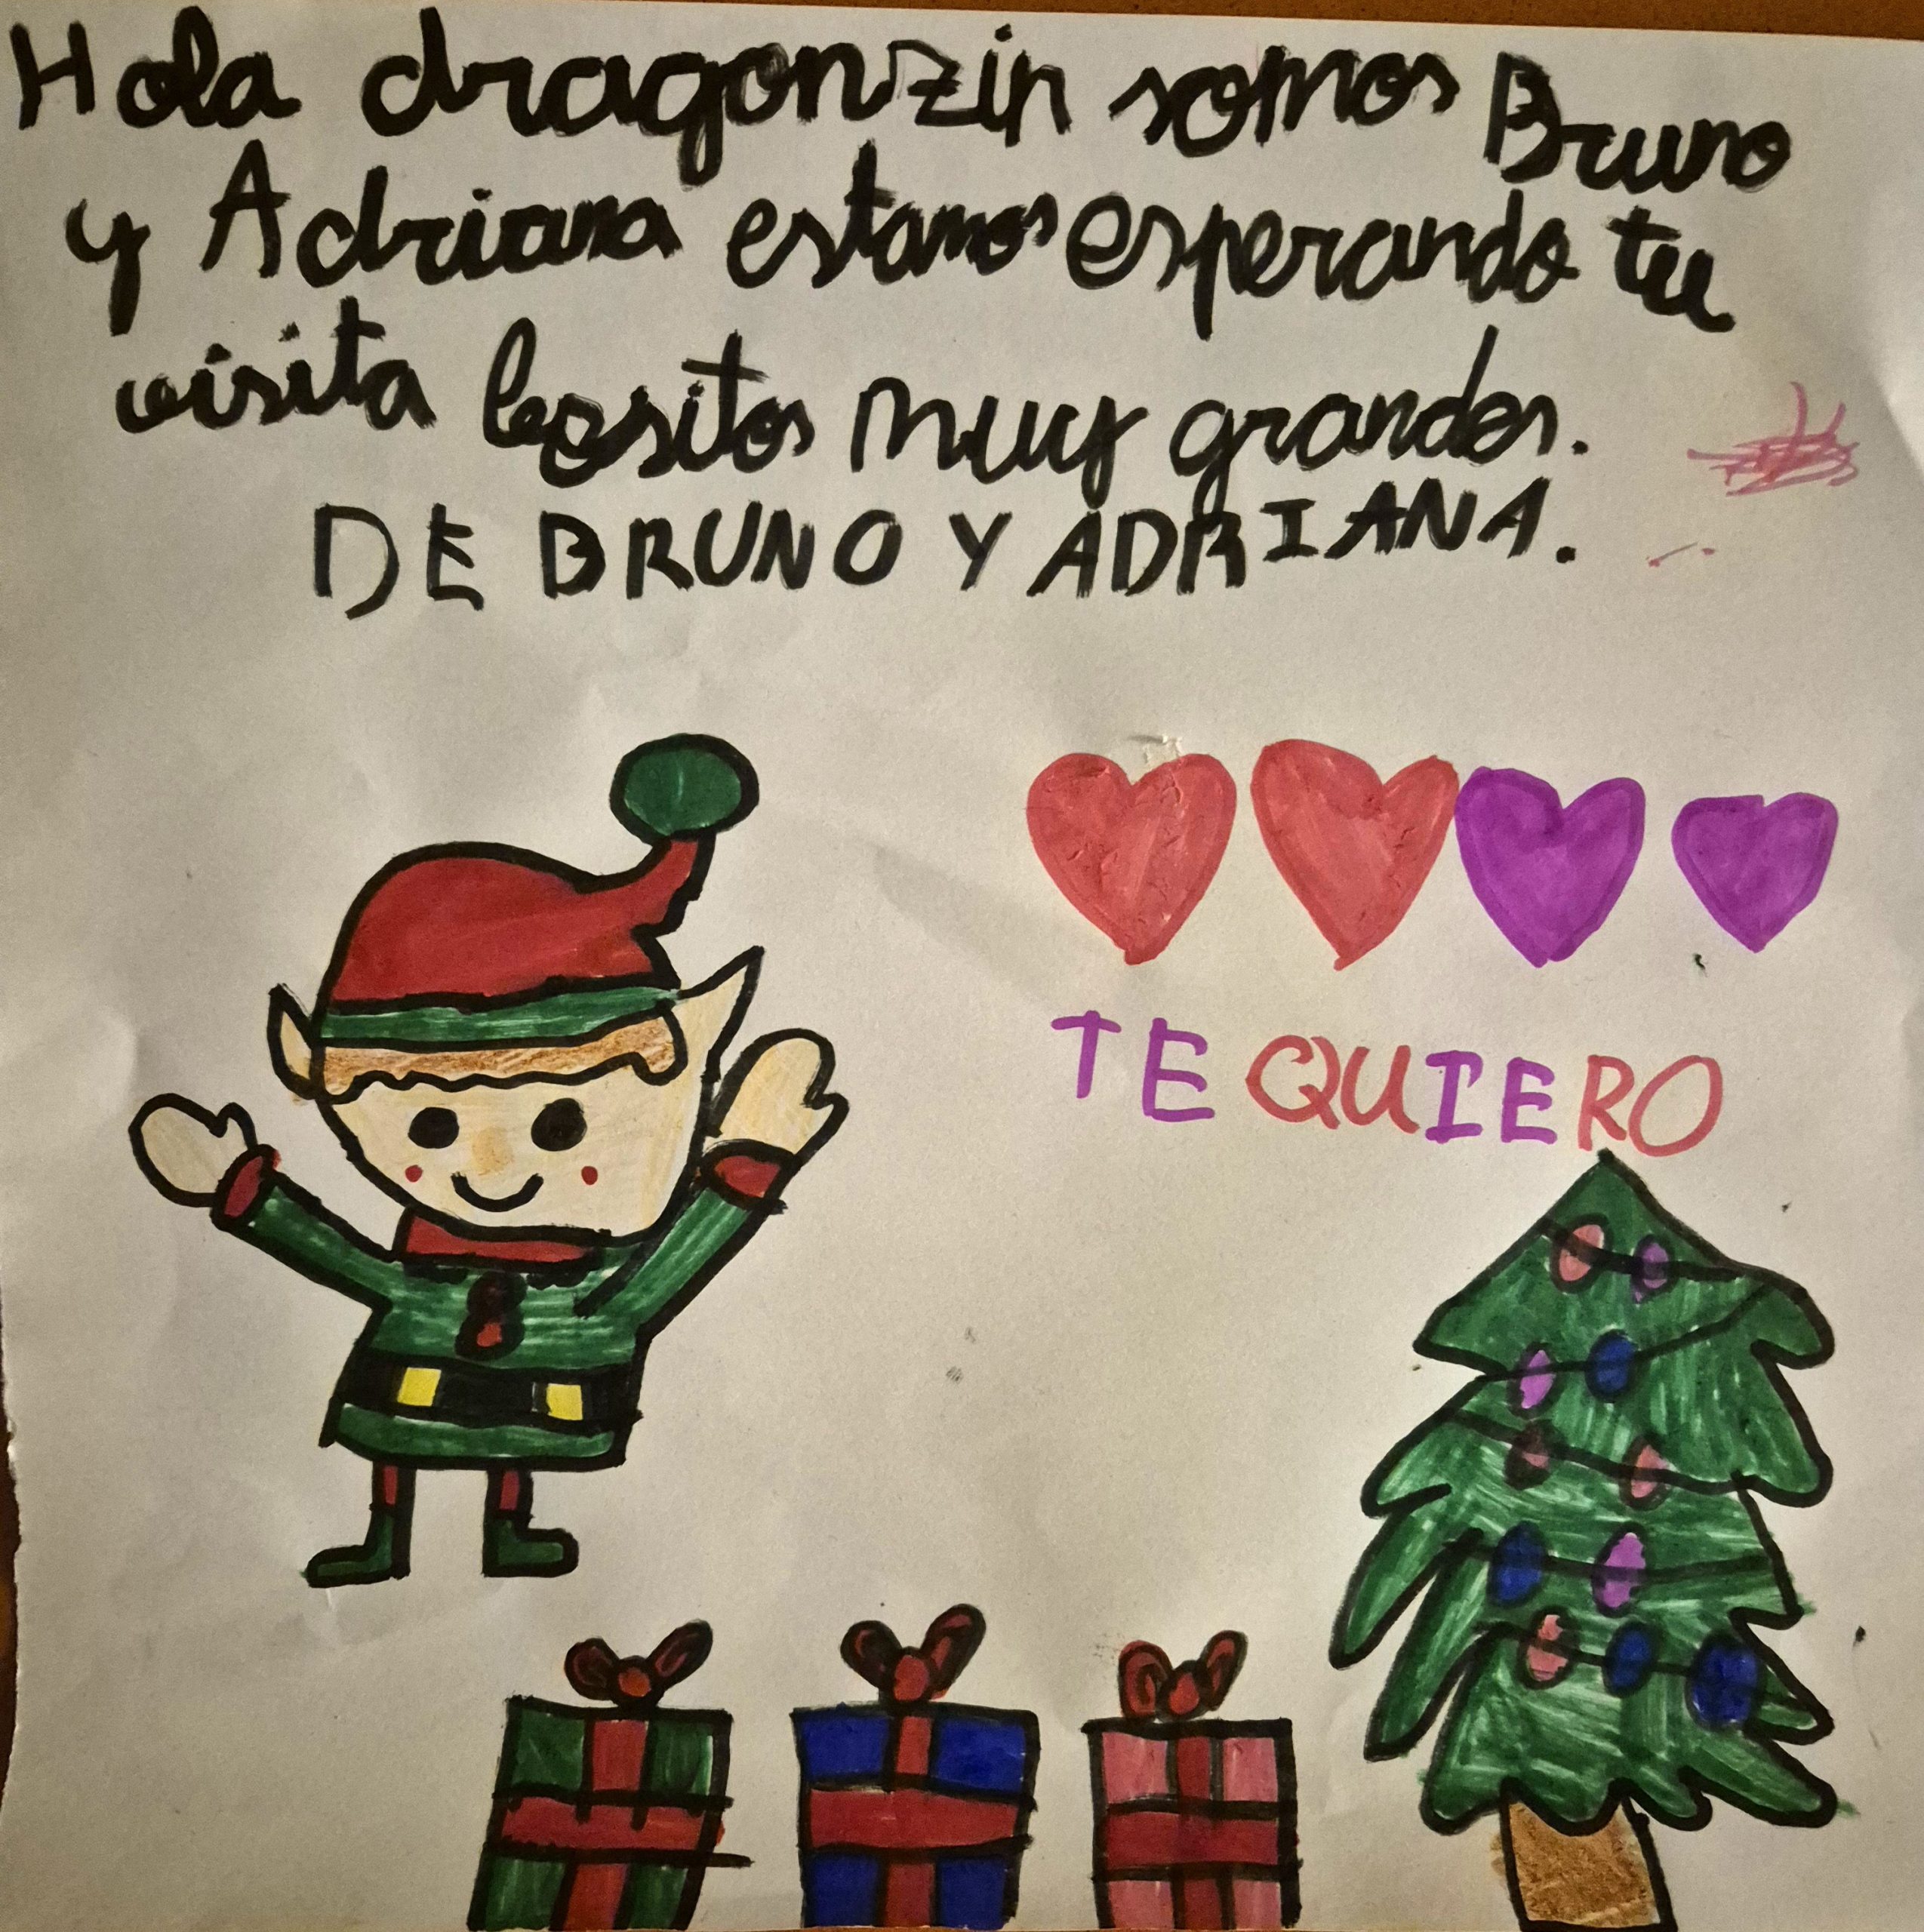 Hola dragonzin somos Bruno
y Adriana estamos esperando tu
visita besitos muy grandes.
DE BRUNO Y ADRIANA.
TE QUIERO